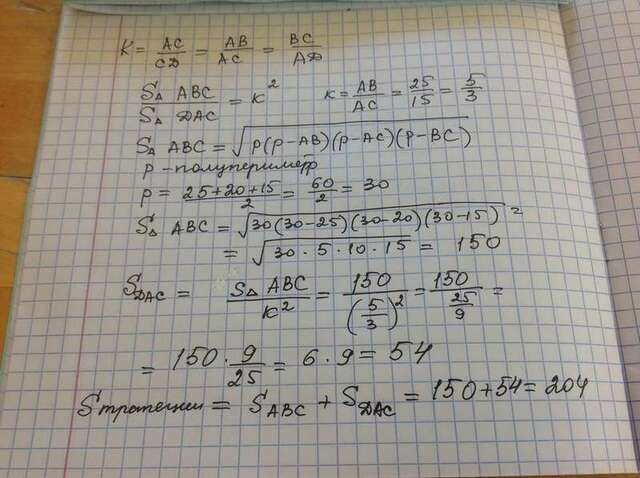 K = AC/CD = AB/AC = BC/AD
S△ ABC / S△ DAC = K² K = AB/AC = 25/15 = 5/3
S△ ABC = √(p(p-AB)(p-AC)(p-BC))
p - полупериметр
p = (25+20+15)/2 = 60/2 = 30
S△ ABC = √(30(30-25)(30-20)(30-15)) =
= √(30·5·10·15) = 150
S DAC = S△ ABC / K² = 150/(5/3)² = 150/(25/9) =
= 150 · 9/25 = 6·9 = 54
S трапеции = S ABC + S DAC = 150+54 = 204